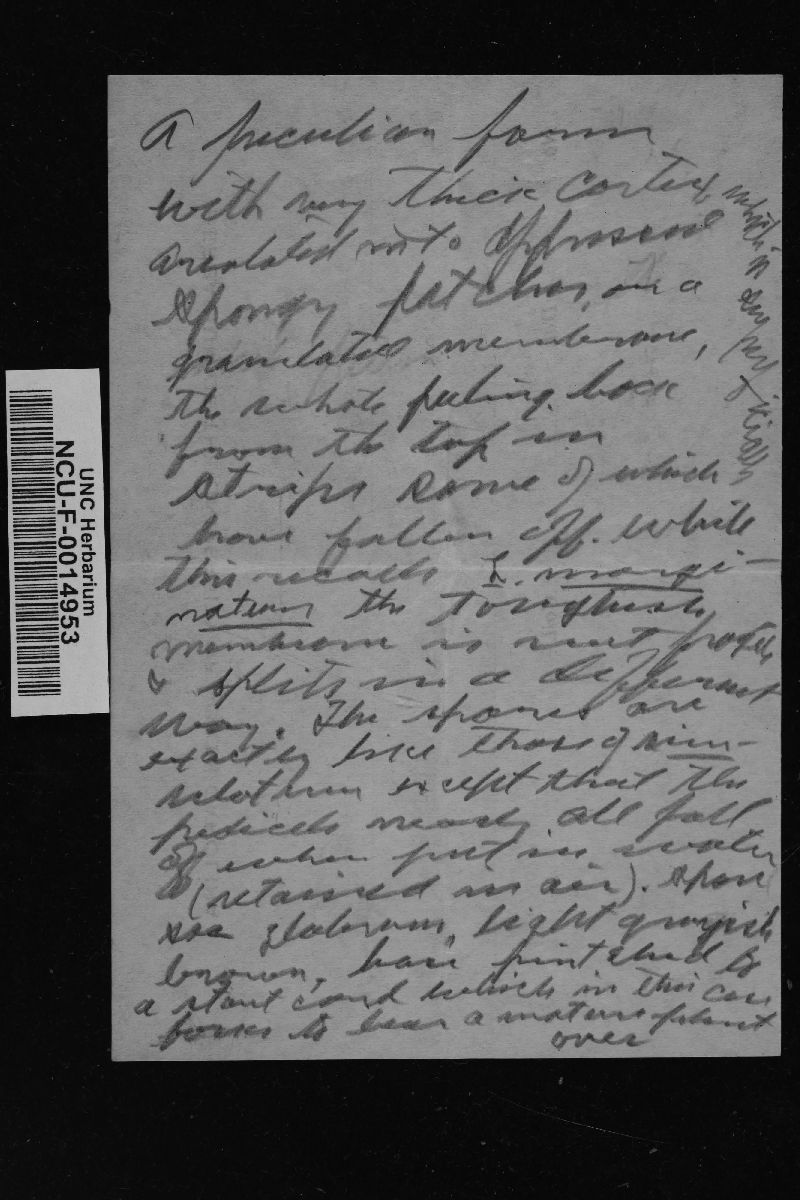 A peculiar form
with very thick cortex
areolated into appressed
spongy patches, on a
granulated membrane,
the whole peeling back
from the top in
strips some of which
have fallen off. While
this recalls L. margi-
natum the toughish
membrane is not
& splits in a different
way. The spores are
exactly like those of sim-
ulatum except that the
pedicels nearly all fall
off when put in water
(retained in air).
glabrum, light grayish
brown, base
a stout cord which in this case
to bear a mature plant
over
UNC Herbarium
NCU-F-0014953